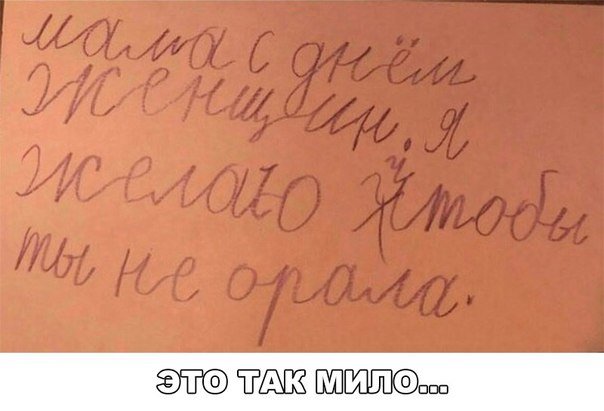 мама с днём
женщин. я
желаю чтобы
ты не орала.
ЭТО ТАК МИЛО...